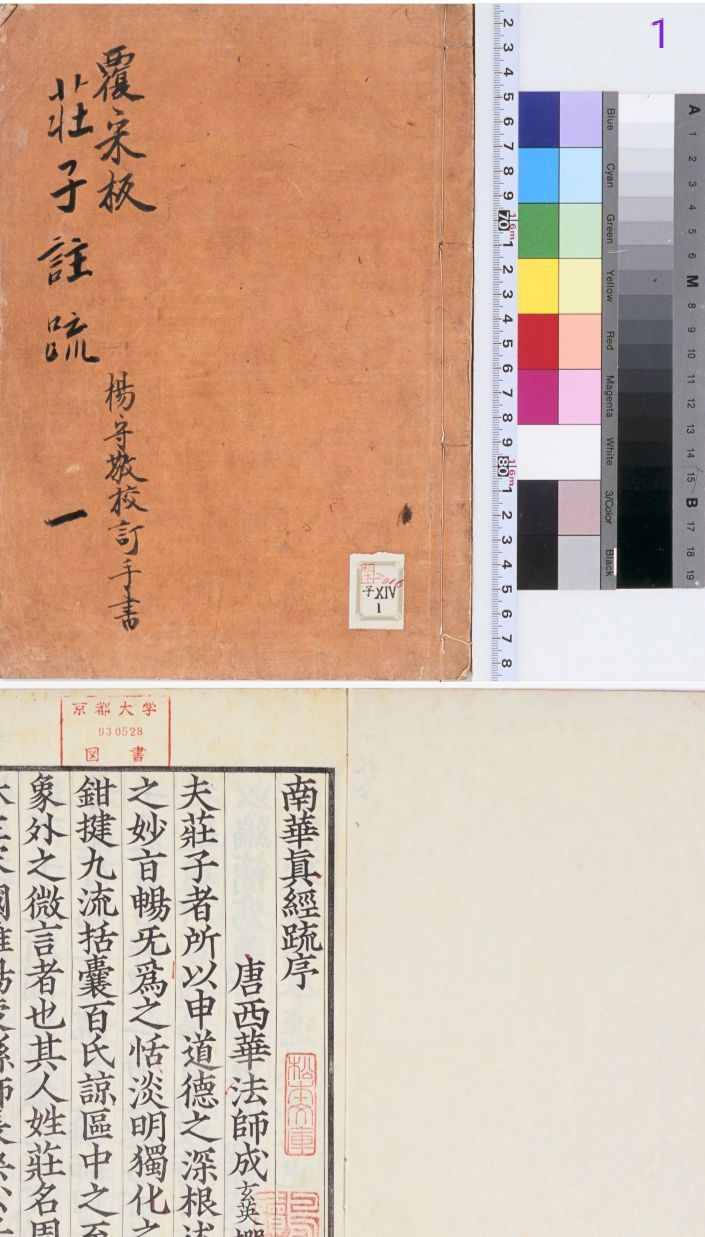 1
覆宋板
莊子註疏
楊守敬校訂手書
一
子XIV
1
2 3 4 5 6 7 8 9 70 1 2 3 4 5 6 7 8 9 80 1 2 3 4 5 6 7 8
Blue
Cyan
Green
Yellow
Red
Magenta
White
3/Color
Black
A 1 2 3 4 5 6 M 8 9 10 11 12 13 14 15 B 17 18 19
京都大学
930528
図書
南華真經疏序
唐西華法師成玄英撰
夫莊子者所以申道德之深根述
之妙旨暢无爲之恬淡明獨化之
鉗揵九流括囊百氏諒區中之至
象外之微言者也其人姓莊名周